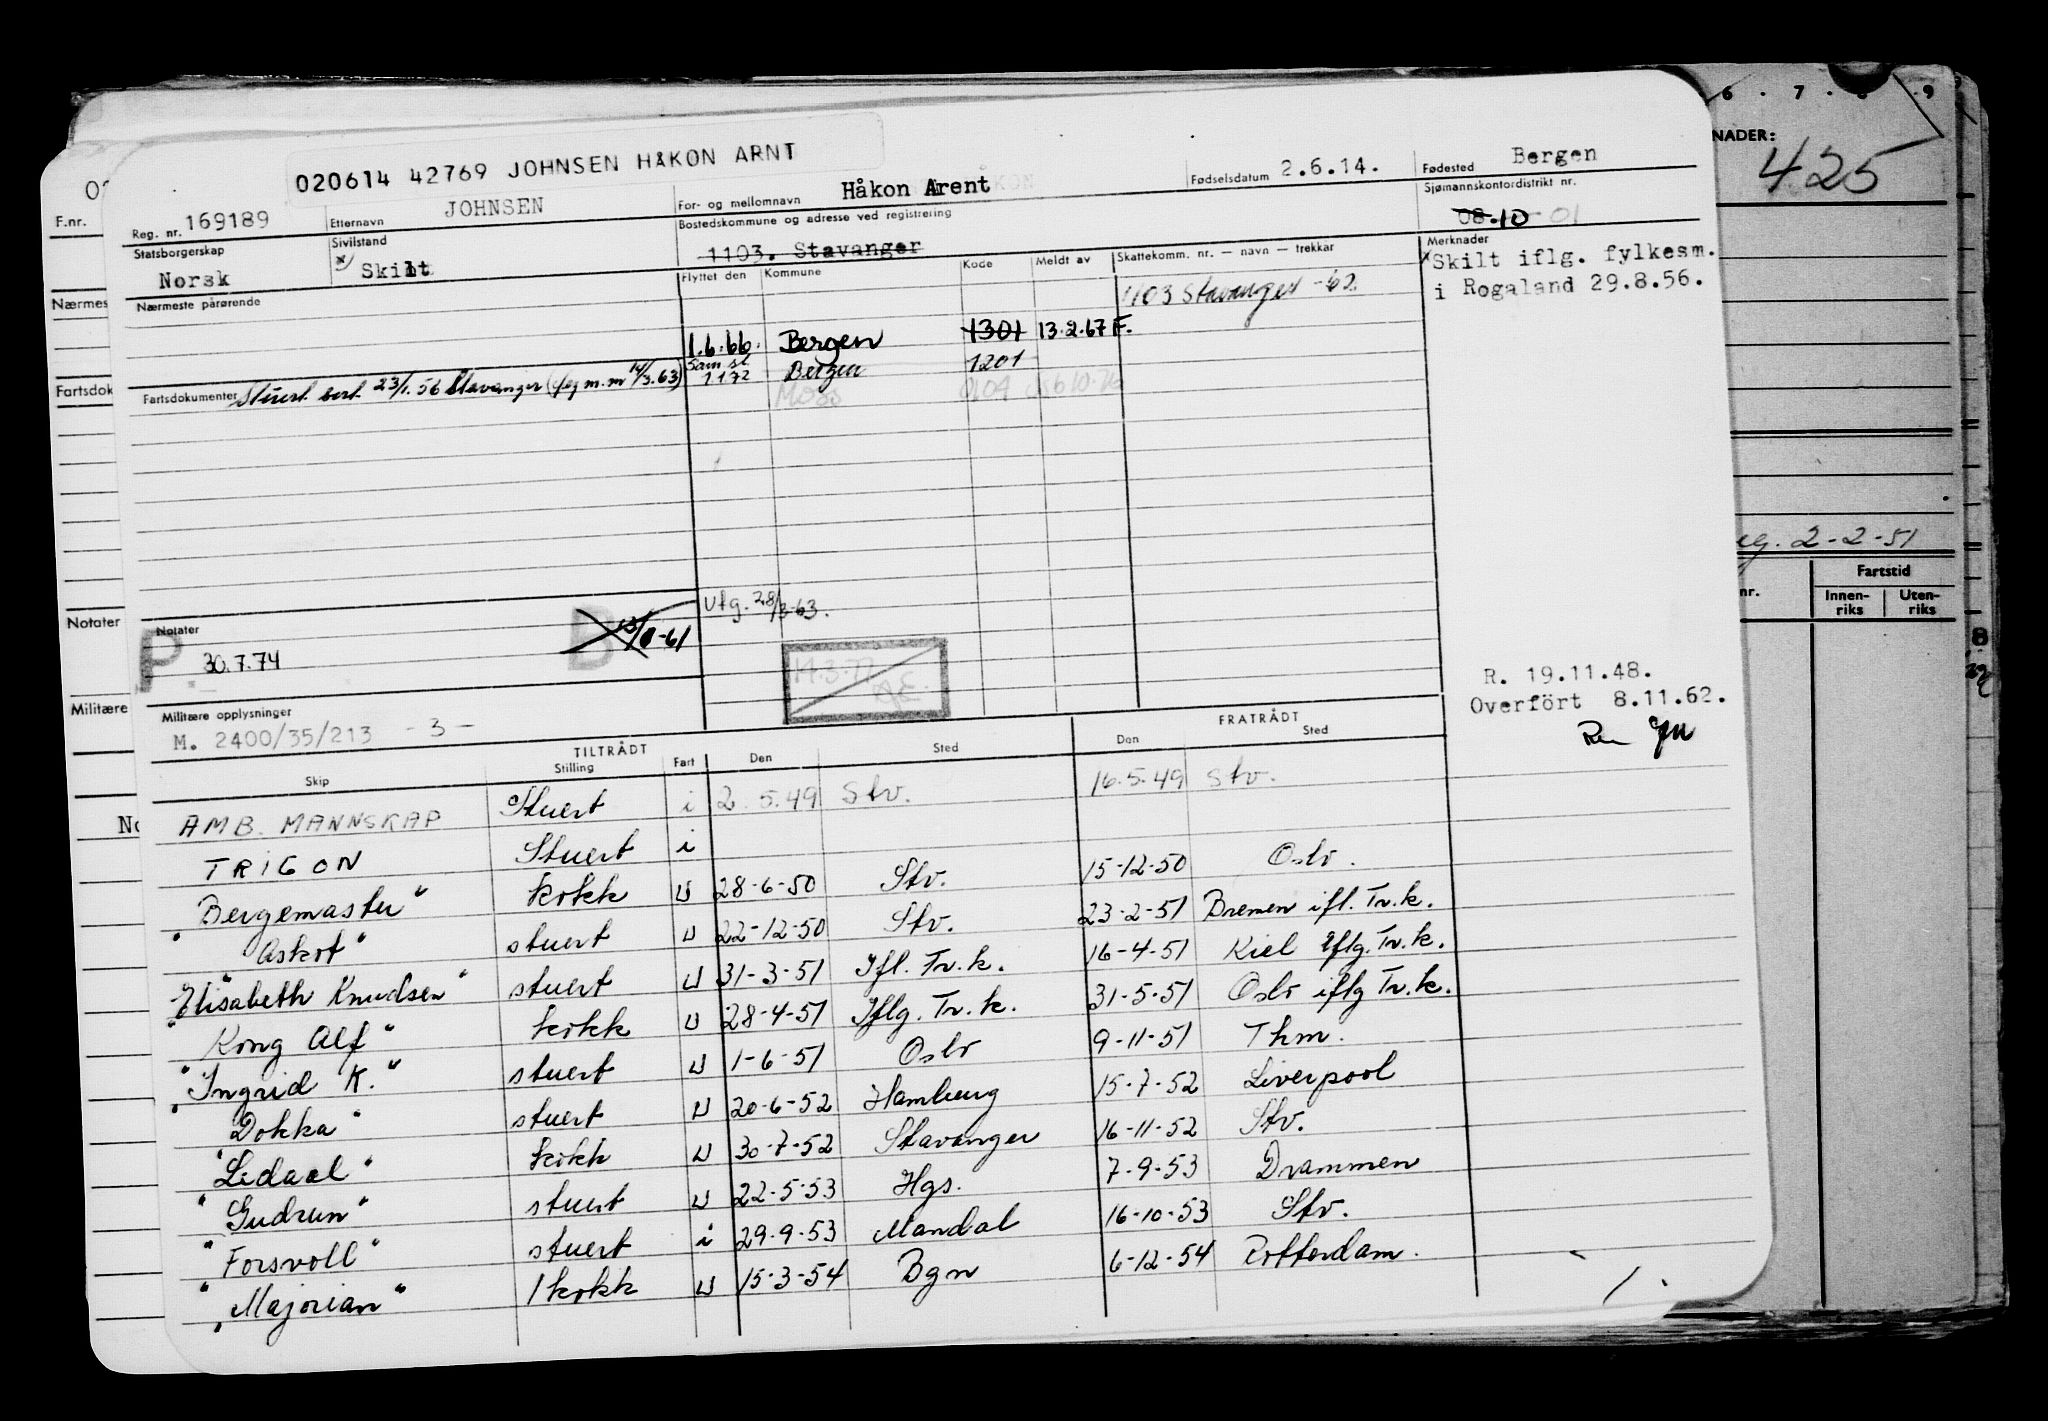 020614 42769 JOHNSEN HÅKON ARNT
Reg. nr. 169189
Etternavn JOHNSEN
For- og mellomnavn Håkon Arent
Fødselsdatum 2.6.14.
Fødested Bergen
Statsborgerskap Norsk
Sivilstand x) Skilt
Bostedskommune og adresse ved registrering
1103. Stavanger
Sjømannskontordistrikt nr.
08 10 01
Nærmeste pårørende
Flyttet den Kommune Kode Meldt av Skattekomm. nr. — navn — trekkår
1103 Stavanger -62.
1.6.66. Bergen 1301 13.2.67 F.
Sam st. 1172 Bergen 1201
Moss 0104
Merknader
x Skilt iflg. fylkesm.
i Rogaland 29.8.56.
Fartsdokumenter Stuert sert. 23/1.56 Stavanger
Utg. 28/3-63.
Notater
P 30.7.74
B
14.3.77
Militære opplysninger
M. 2400/35/213 -3-
R. 19.11.48.
Overfört 8.11.62.
TILTRÅDT FRATRÅDT
Skip Stilling Fart Den Sted Den Sted
AMB. MANNSKAP Stuert i 2.5.49 Stv. 16.5.49 Stv.
TRIGON Stuert i
"Bergemaster" kokk u 28-6-50 Stv. 15-12-50 Oslo.
"Askot" stuert u 22-12-50 Stv. 23-2-51 Bremen ifl. Tr.k.
"Elisabeth Knudsen" stuert u 31-3-51 Ifl. Tr.k. 16-4-51 Kiel iflg. Tr.k.
"Kong Alf" kokk u 28-4-51 Iflg. Tr.k. 31-5-51 Oslo iflg Tr.k.
"Ingrid K." stuert u 1-6-51 Oslo 9-11-51 Thm.
"Dokka" stuert u 20-6-52 Hamburg 15-7-52 Liverpool
"Ledaal" kokk u 30-7-52 Stavanger 16-11-52 Stv.
"Gudrun" stuert u 22-5-53 Hgs. 7-9-53 Drammen
"Forsvoll" stuert i 29-9-53 Mandal 16-10-53 Stv.
"Majorian" 1 kokk u 15-3-54 Bgn 6-12-54 Rotterdam.
F.nr.
Nærmes
Fartsdok
Notater
Militære
6 . 7 . 8 . 9
NADER:
425
2-2-51
nr.
Fartstid
Innen-riks Uten-riks